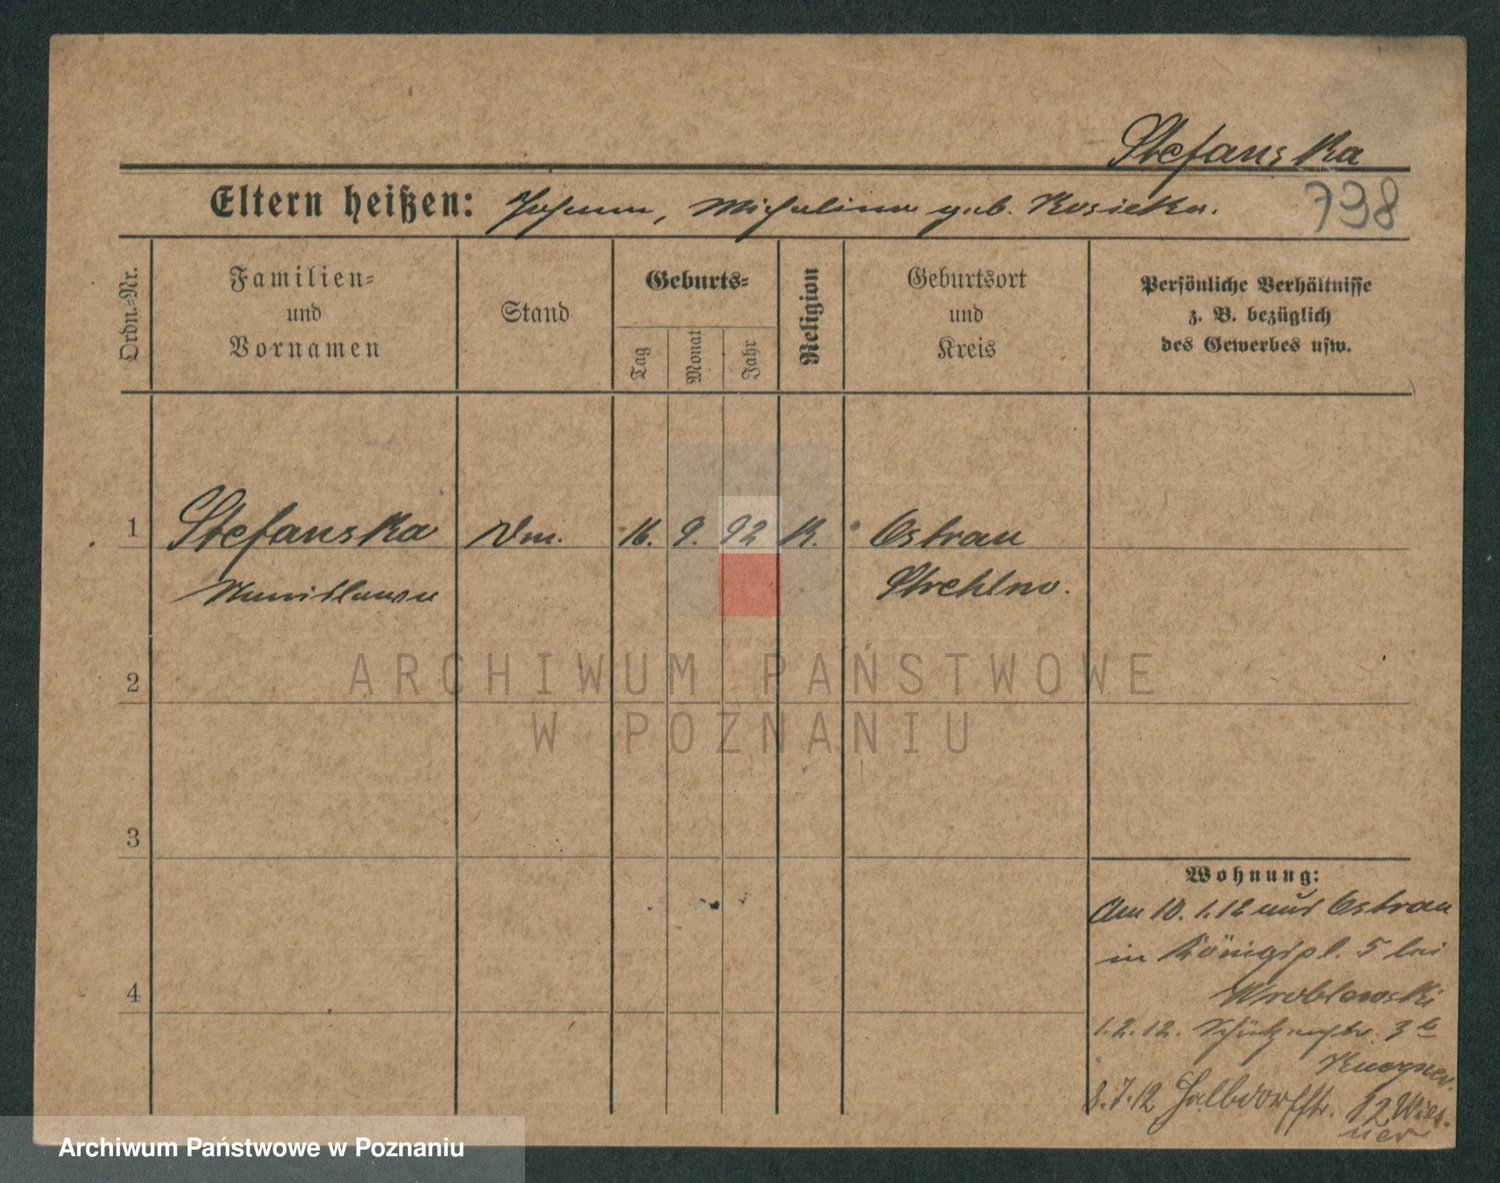 Stefanska
Eltern heißen: Johann, Michalina geb. Kosicka.
798
Ordn.-Nr.
Familien- und Vornamen
Stand
Geburts-
Tag
Monat
Jahr
Religion
Geburtsort und Kreis
Persönliche Verhältnisse
z. B. bezüglich
des Gewerbes usw.
1 Stefanska Dm. 16. 9. 92 K. Ostrau
Stanislawa Strehlno.
2
ARCHIWUM PAŃSTWOWE
W POZNANIU
3
Wohnung:
Am 10. 1. 12 aus Ostrau
in Königspl. 5 bei
Wroblewski
4
1. 2. 12. Schützenstr. 3 b
8. 7. 12 Halbdorfstr. 12
Archiwum Państwowe w Poznaniu